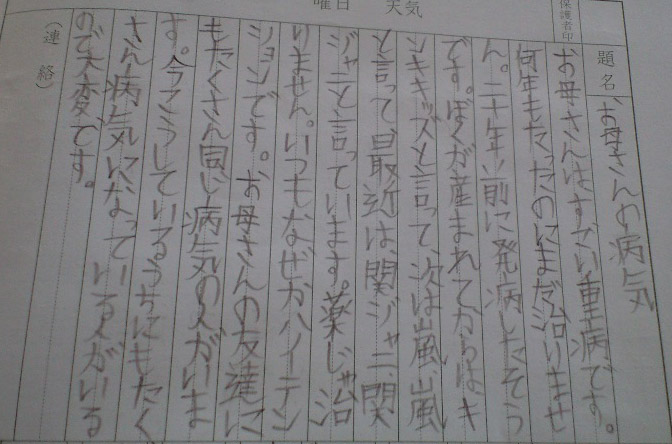 曜日 天気
保護者印
題名
お母さんの病気
お母さんはすごい重病です。
何年もたったのにまだ治りませ
ん。二十年い前に発病したそう
です。ぼくが産まれてからはキ
ンキキッズと言って、次は嵐嵐
と言って最近は関ジャニ、関
ジャニと言っています。薬じゃ治
りません。いつもなぜかハイテン
ションです。お母さんの友達に
もたくさん同じ病気の人がいま
す。今こうしているうちにもたく
さん病気になっている人がいる
ので大変です。
（連絡）